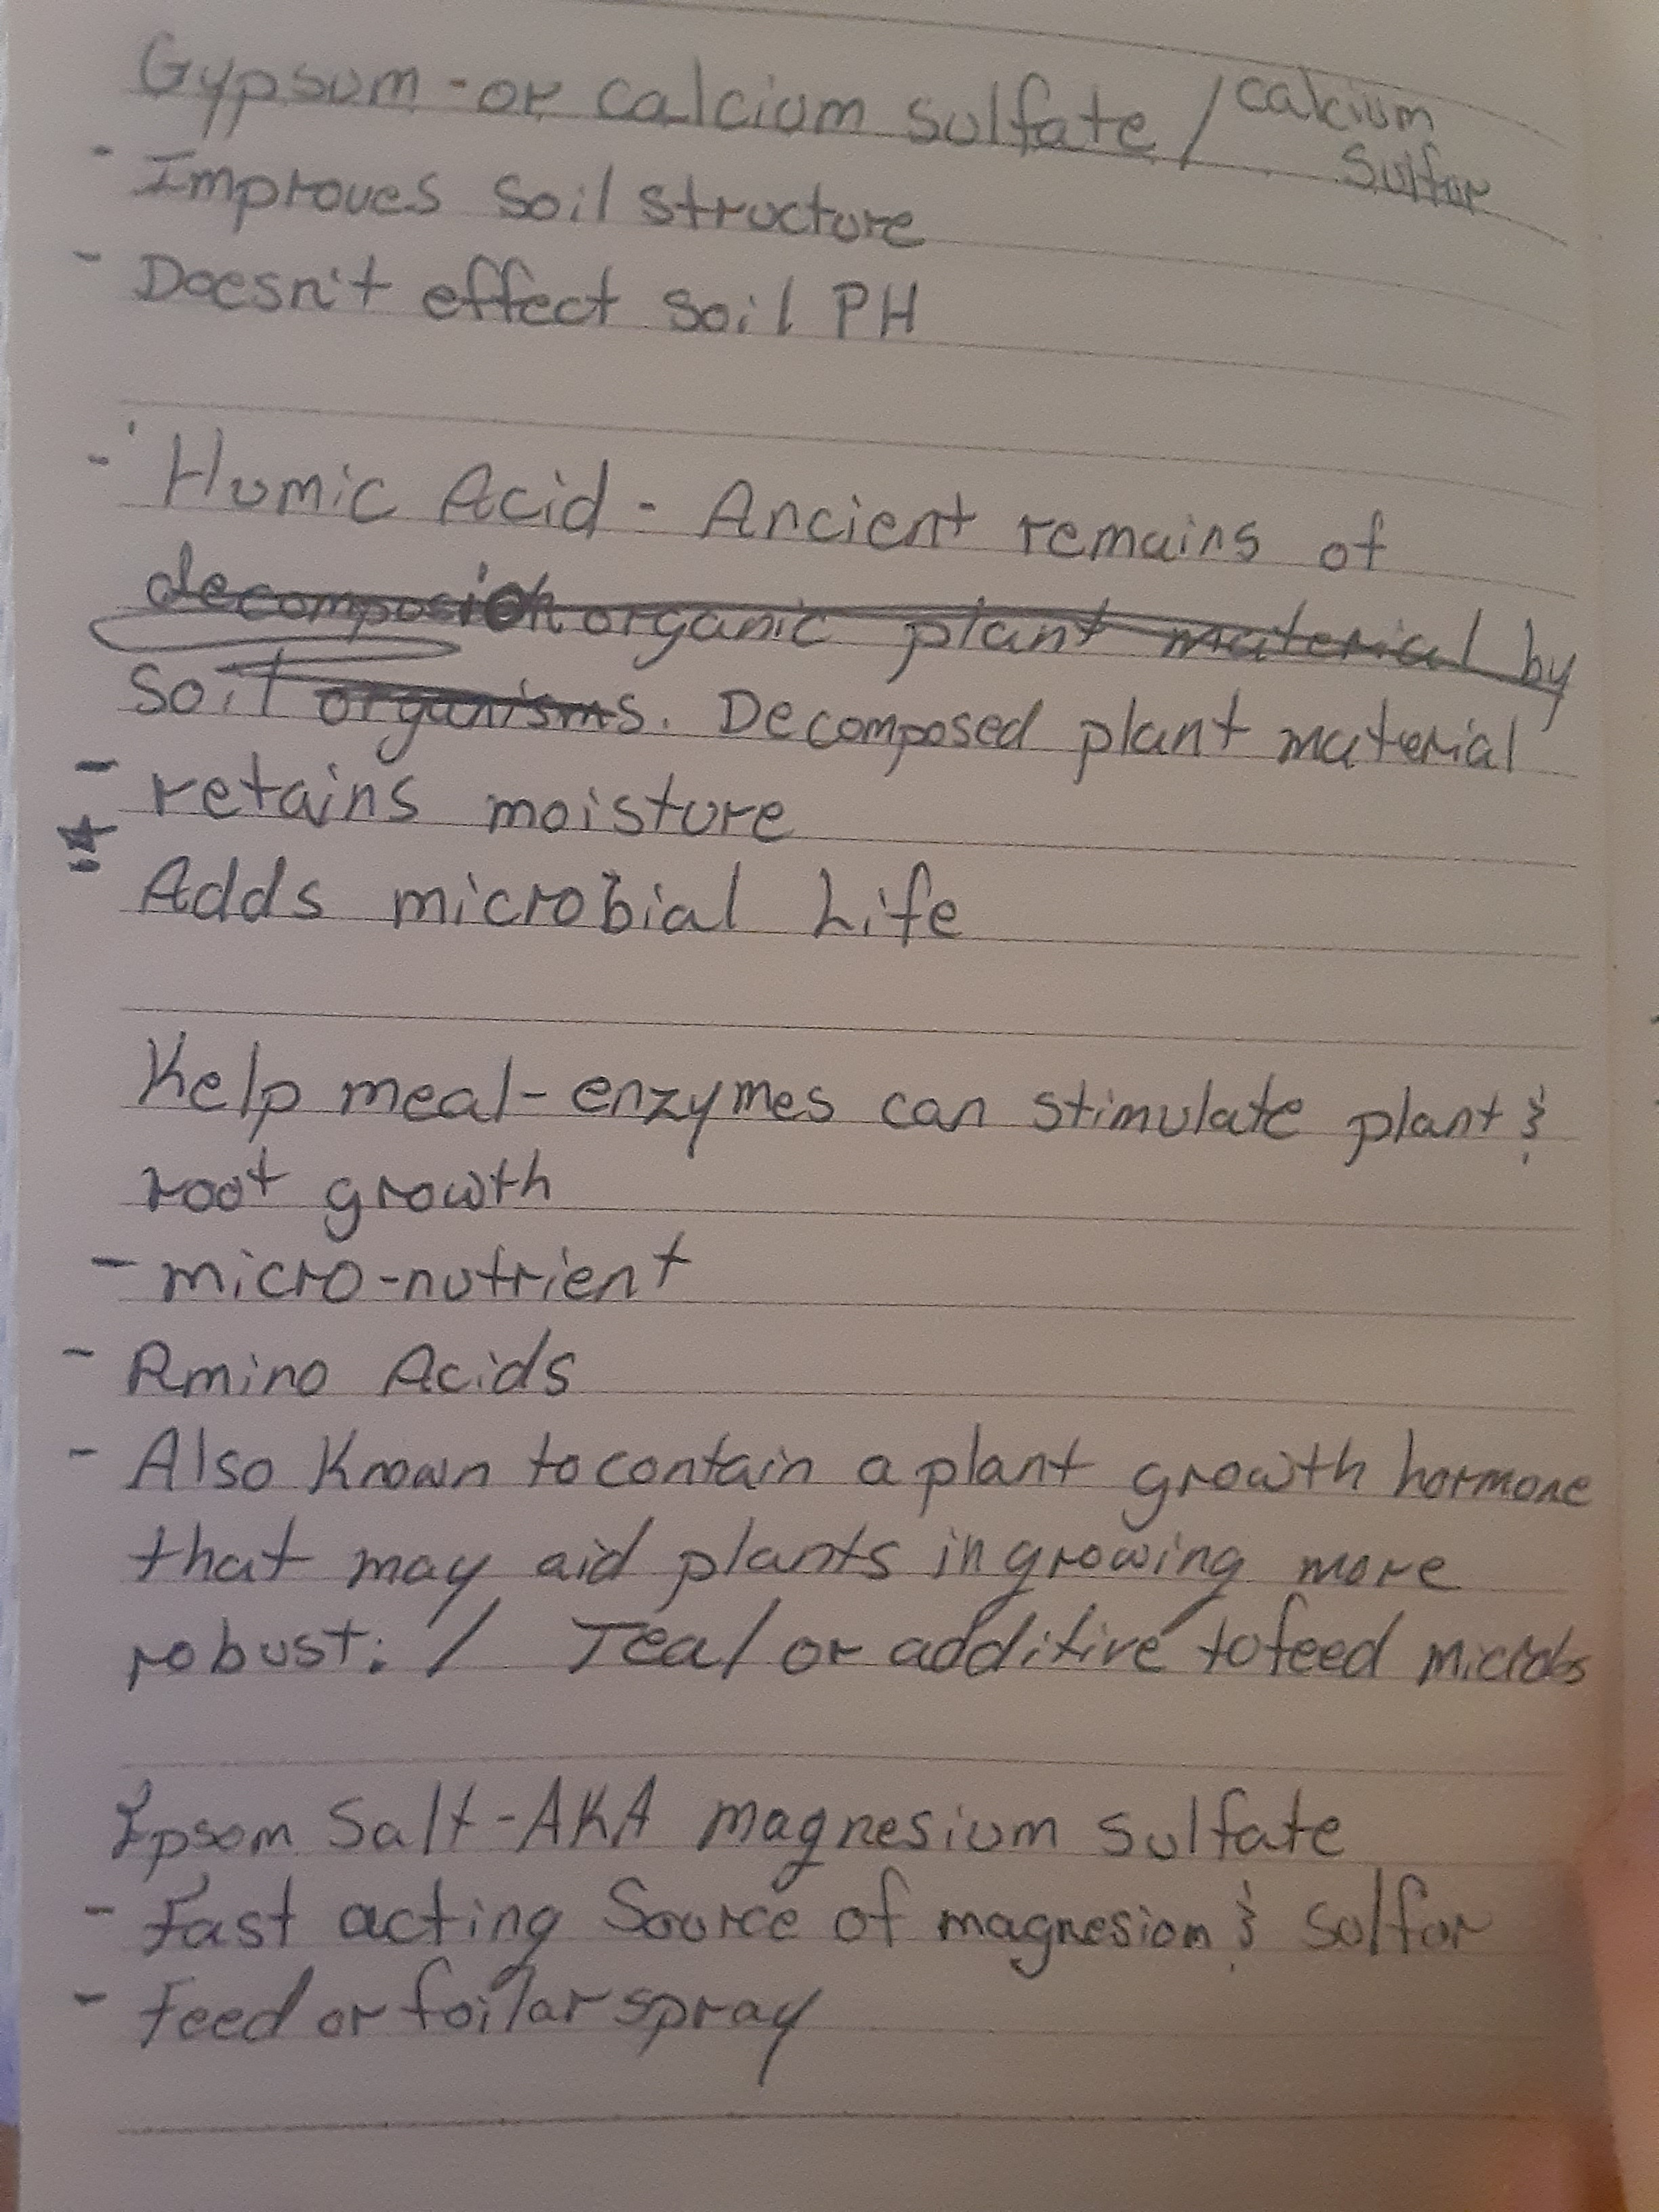 Gypsum - or calcium sulfate / calcium sulfur
- Improves soil structure
- Doesn't effect soil PH
- Humic Acid - Ancient remains of
decomposion organic plant material by
soil organisms. Decomposed plant material
- retains moisture
- Adds microbial Life
Kelp meal - enzymes can stimulate plant &
root growth
- micro-nutrient
- Amino Acids
- Also Known to contain a plant growth hormone
that may aid plants in growing more
robust. / Tea / or additive to feed microbs
Ipsom Salt - AKA magnesium sulfate
- Fast acting Source of magnesiom & sulfur
- Feed or foilar spray